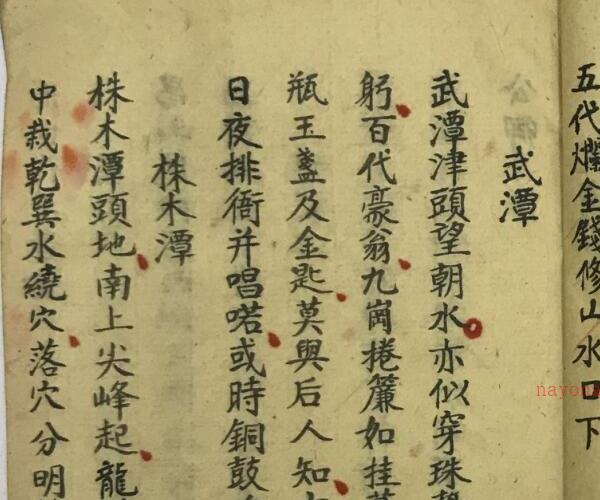 五代爛金錢修山水口下
武潭
武潭津頭望朝水亦似穿珠
躬百代豪翁九崗捲簾如挂
瓶玉盞及金匙莫與后人知
日夜排衙并唱喏或時銅鼓
株木潭
株木潭頭地南上尖峰起龍
中栽乾巽水繞穴落穴分明
nayona